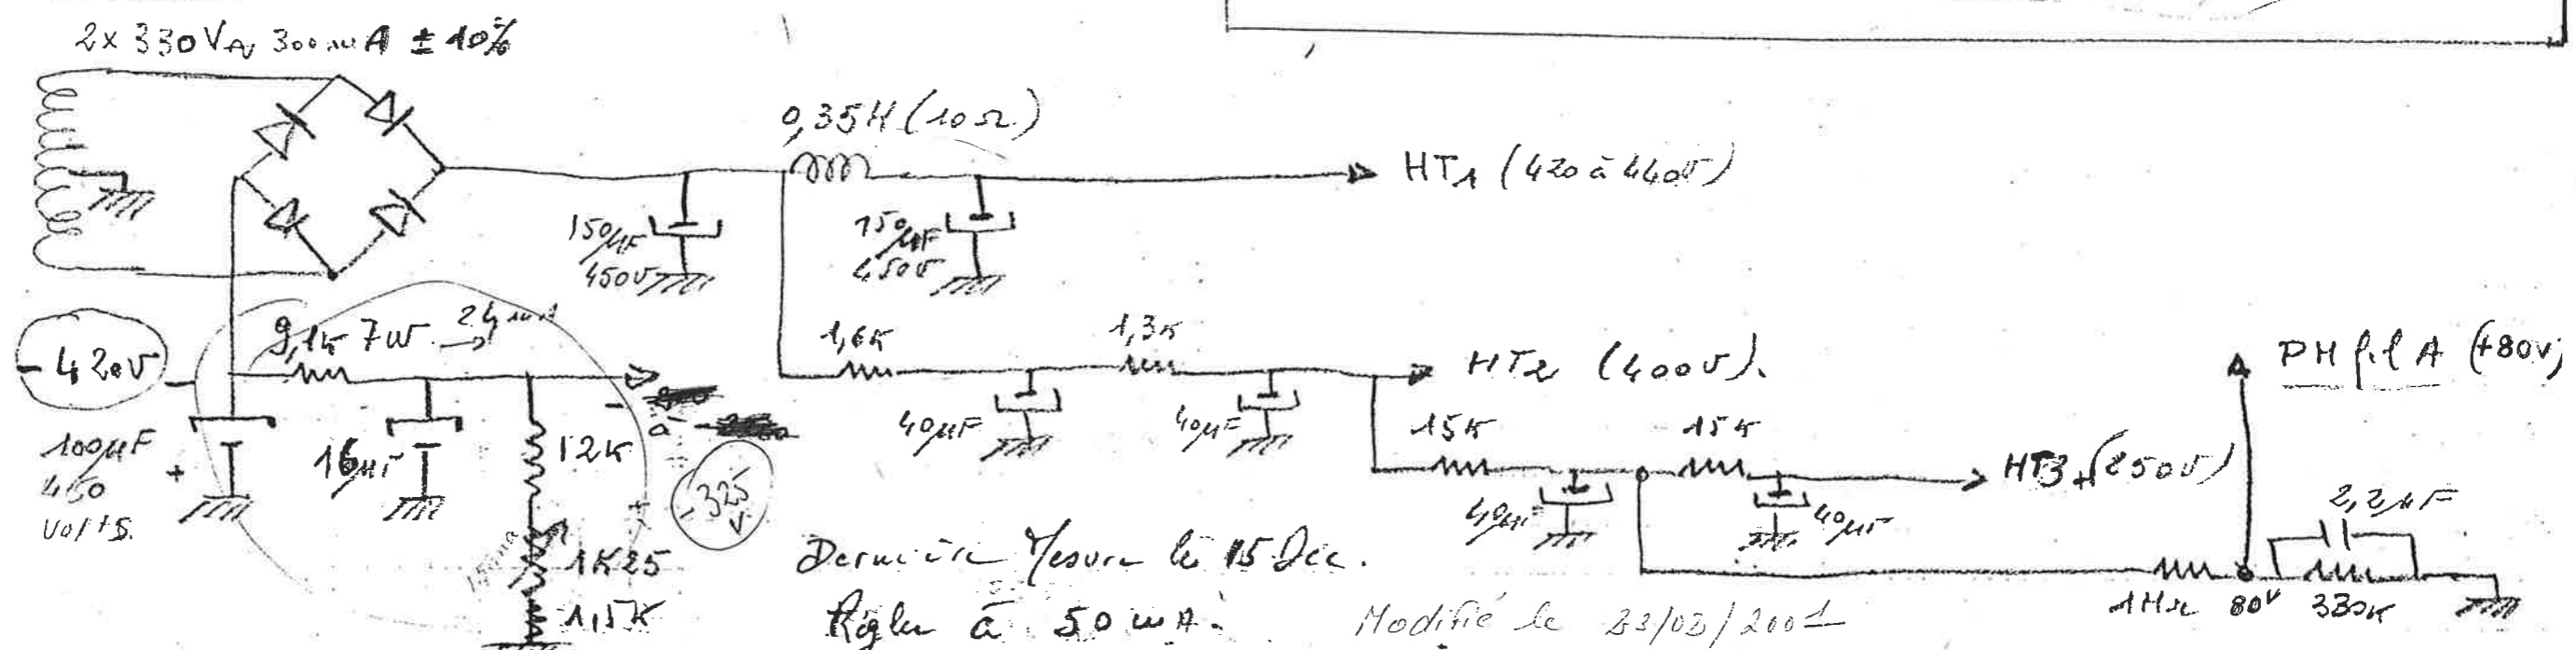 2x 330V~ 300mA ± 10%
0,35H (10Ω)
HT1 (420 à 440V)
150µF
450V
150µF
450V
- 420V
9,1K 7W → 24mA
1,6K
1,3K
HT2 (400V).
PH fil A (+80V)
100µF
450
volts.
+
16µF
12K
à
- 325
V
40µF
40µF
15K
15K
HT3 (250V)
40µF
40µF
2,2µF
1K25
1,5K
Dernière Mesure le 15 Déc.
Régler à 50mA.
Modifié le
1MΩ
80V
330K